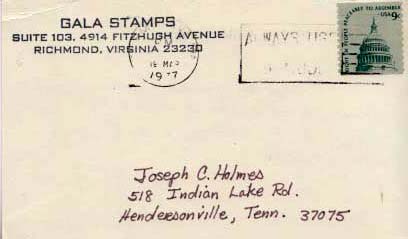 GALA STAMPS
SUITE 103, 4914 FITZHUGH AVENUE
RICHMOND, VIRGINIA 23230
PM
1977
TO ASSEMBLE
USA 9c
Joseph C. Holmes
518 Indian Lake Rd.
Hendersonville, Tenn. 37075